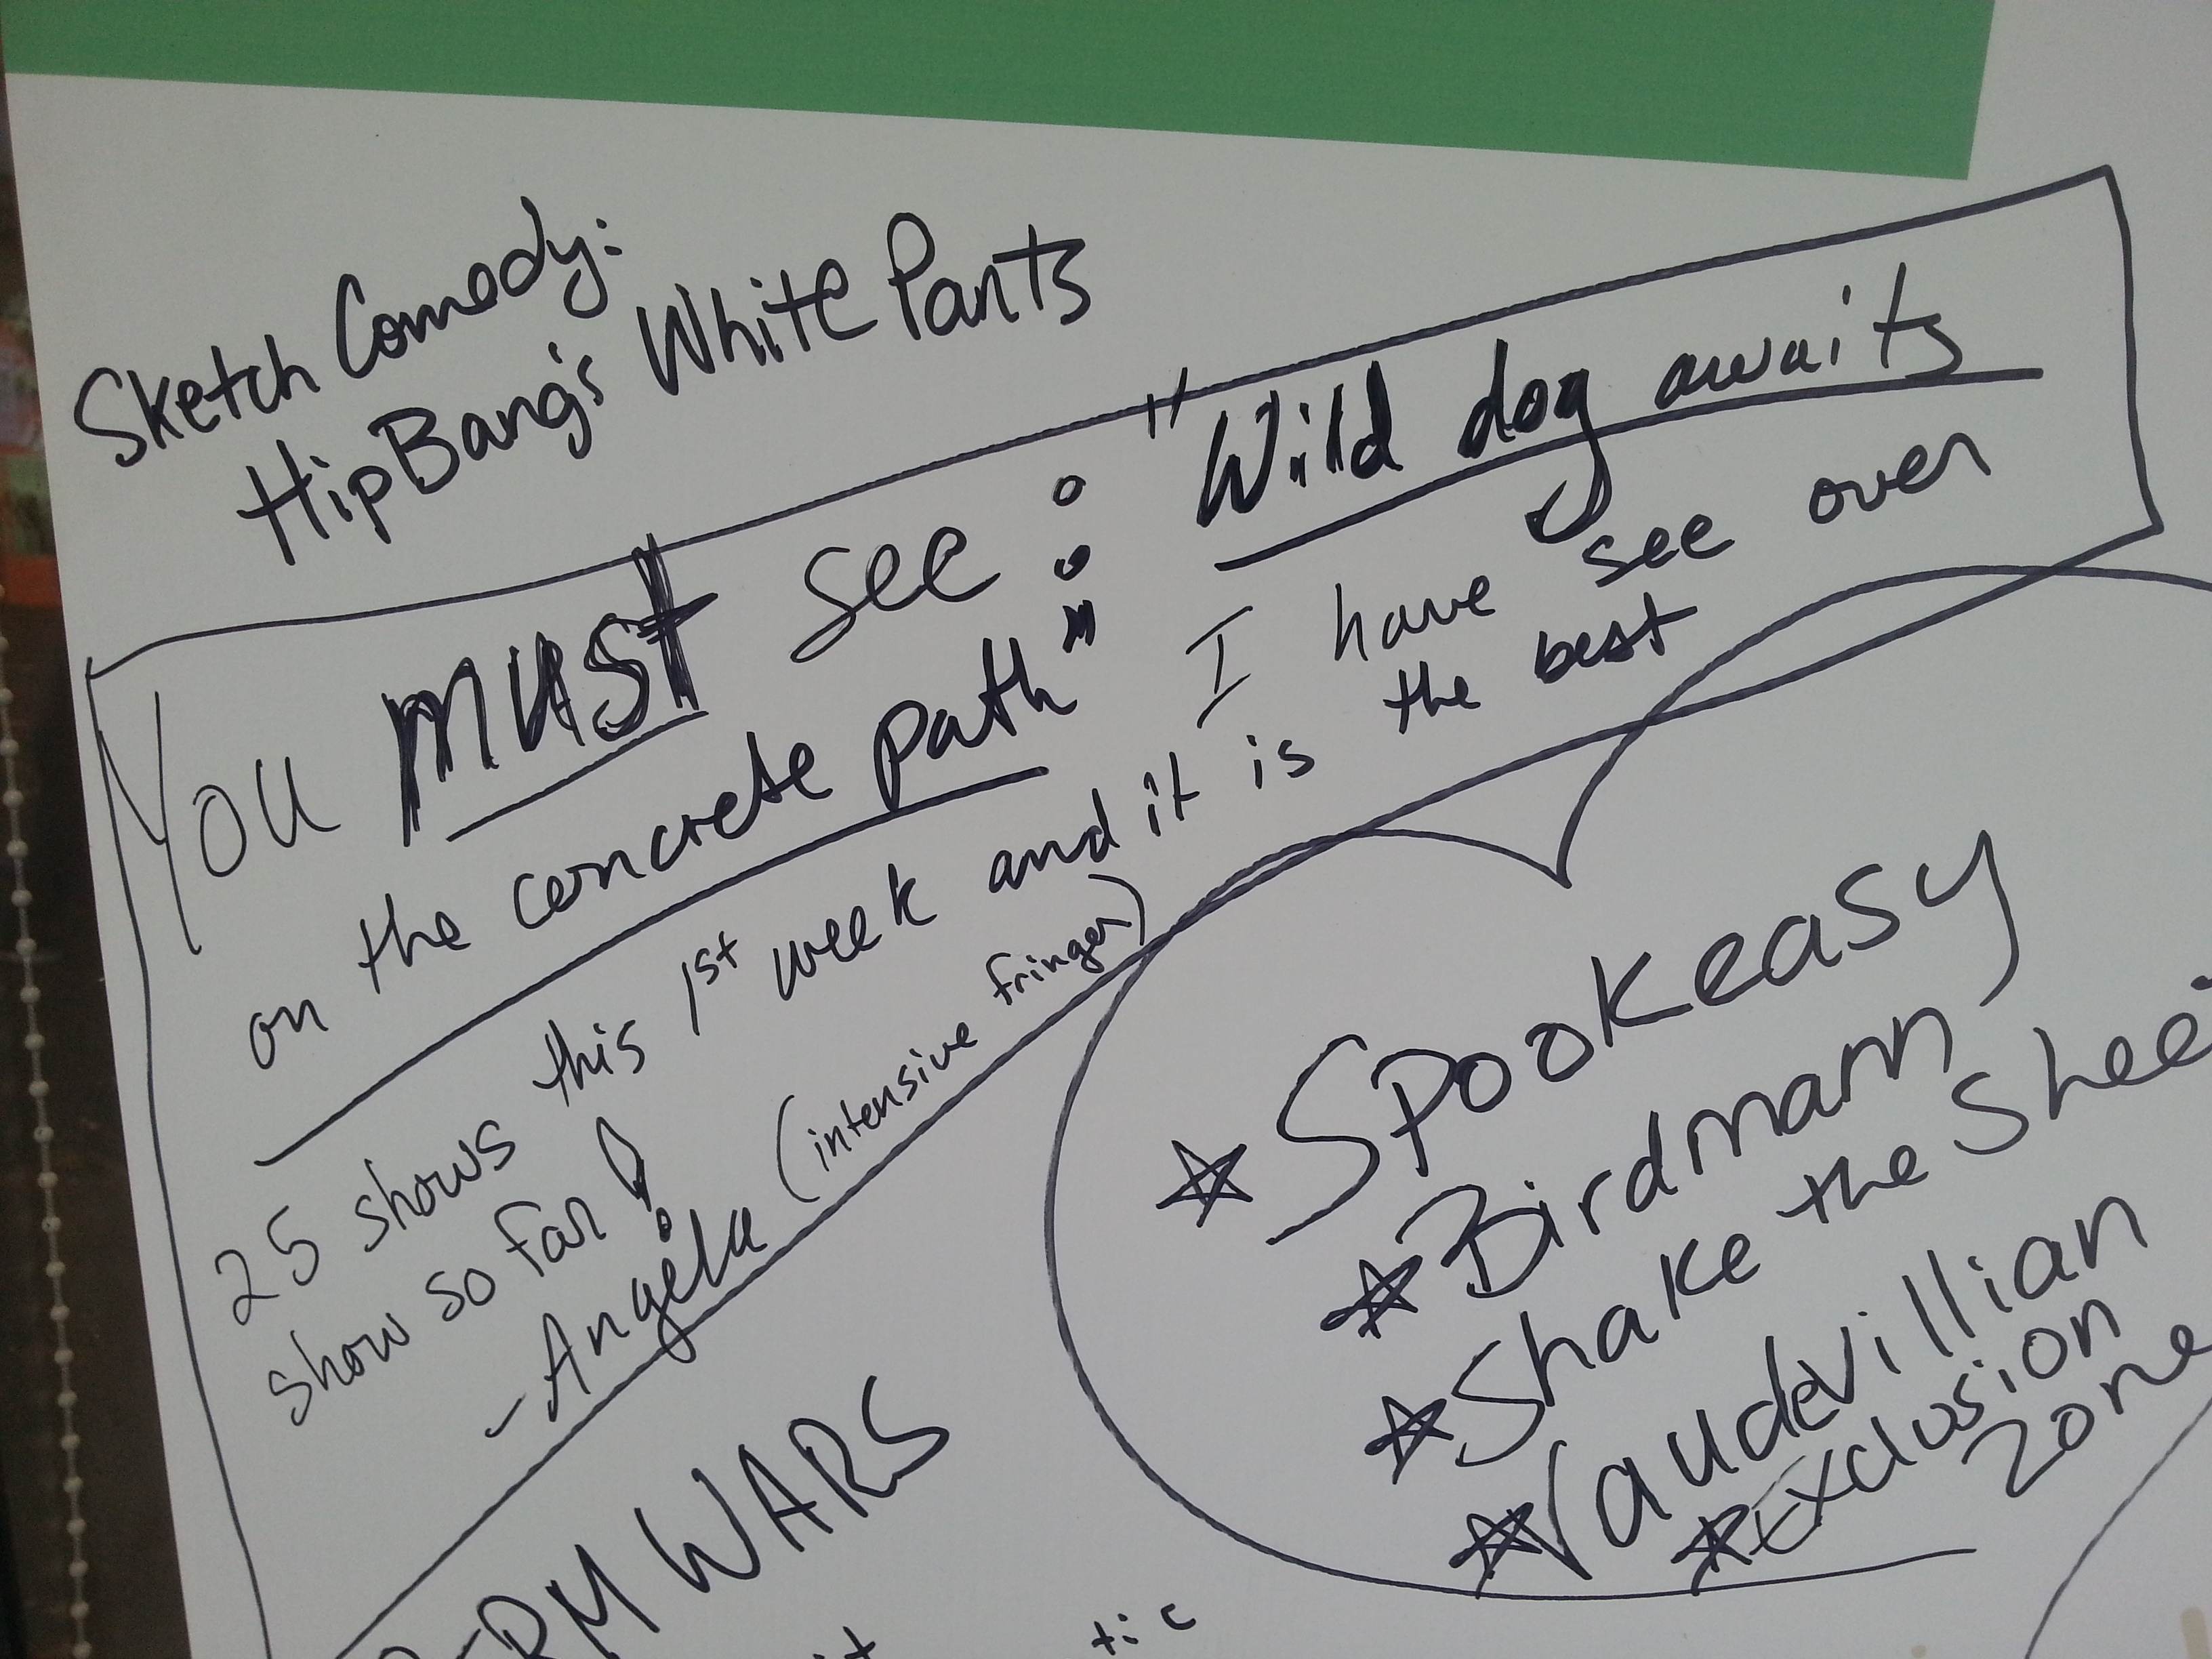 Sketch Comedy:
HipBang's White Pants
You must see : "Wild dog awaits
on the concrete path" I have see over
25 shows this 1st week and it is the best
show so far!
- Angela (intensive fringer)
☆ Spookeasy
☆ Birdmann
☆ Shake the Shee
☆ Vaudevillian
☆ Exclusion
Zone
WARS